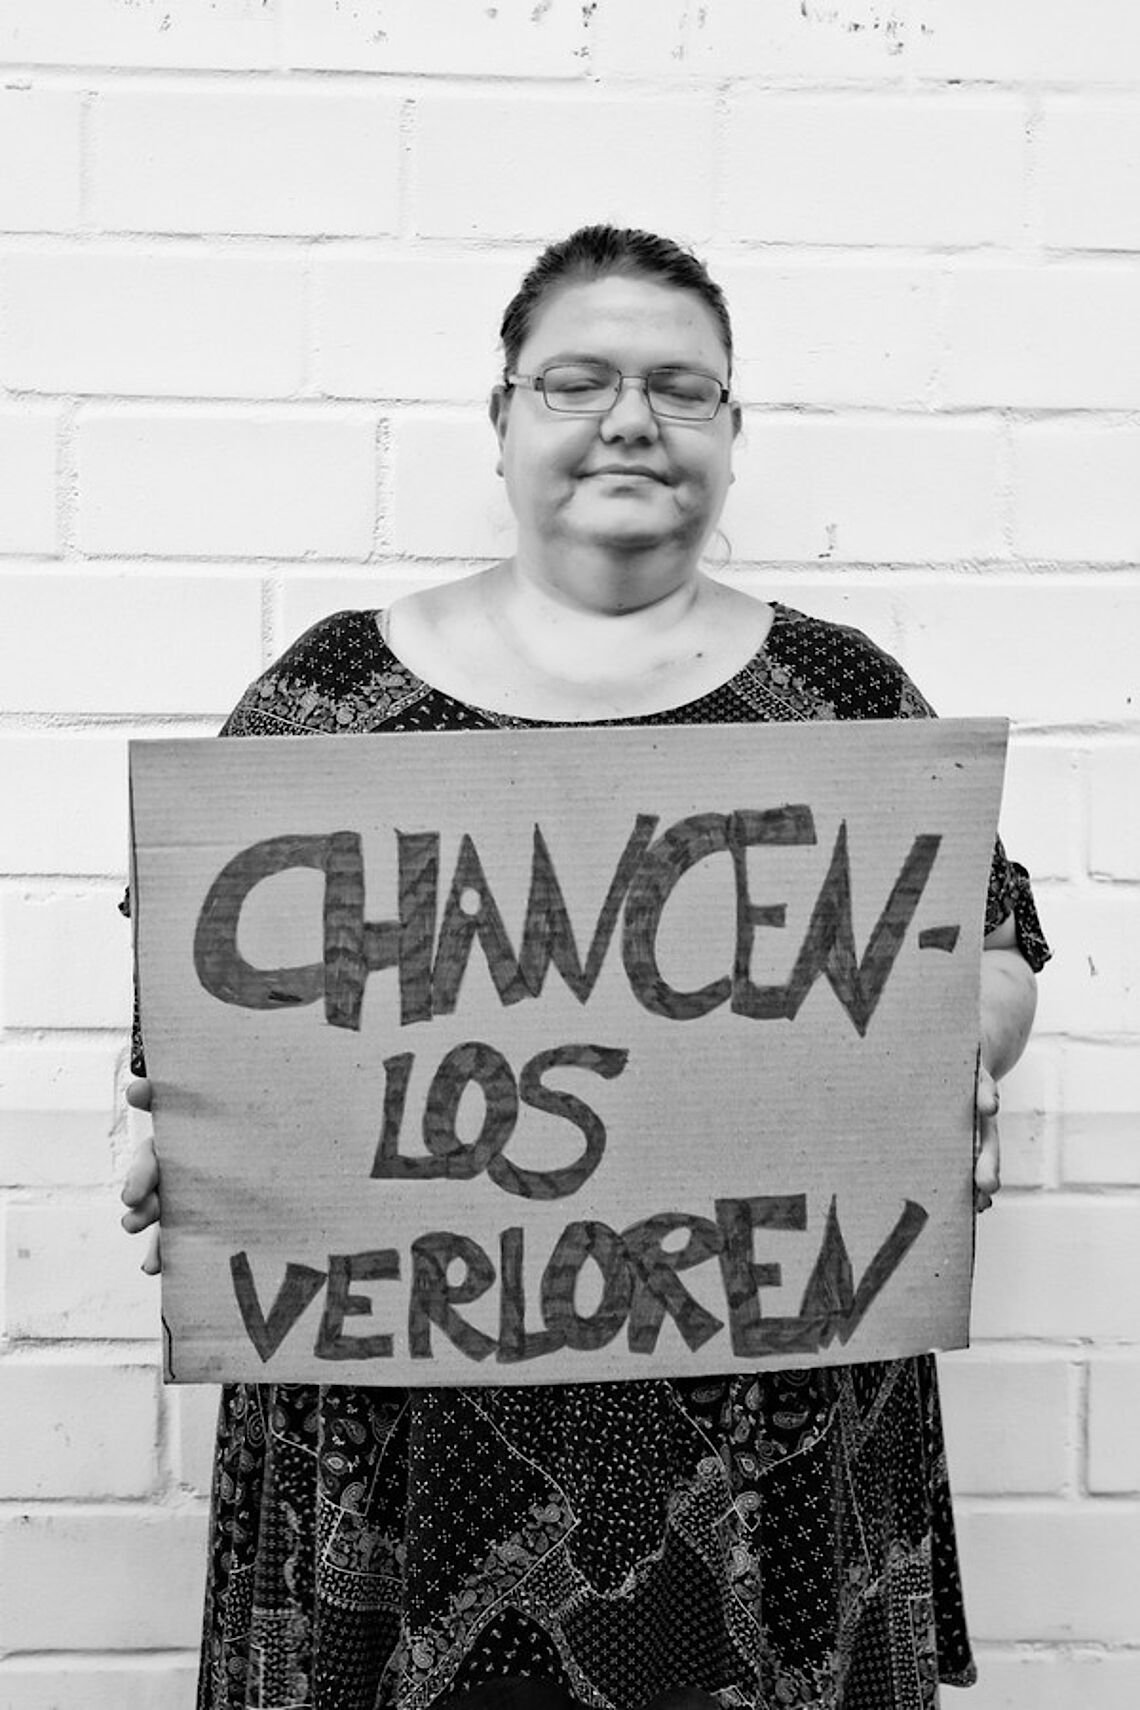 CHANCEN-
LOS
VERLOREN